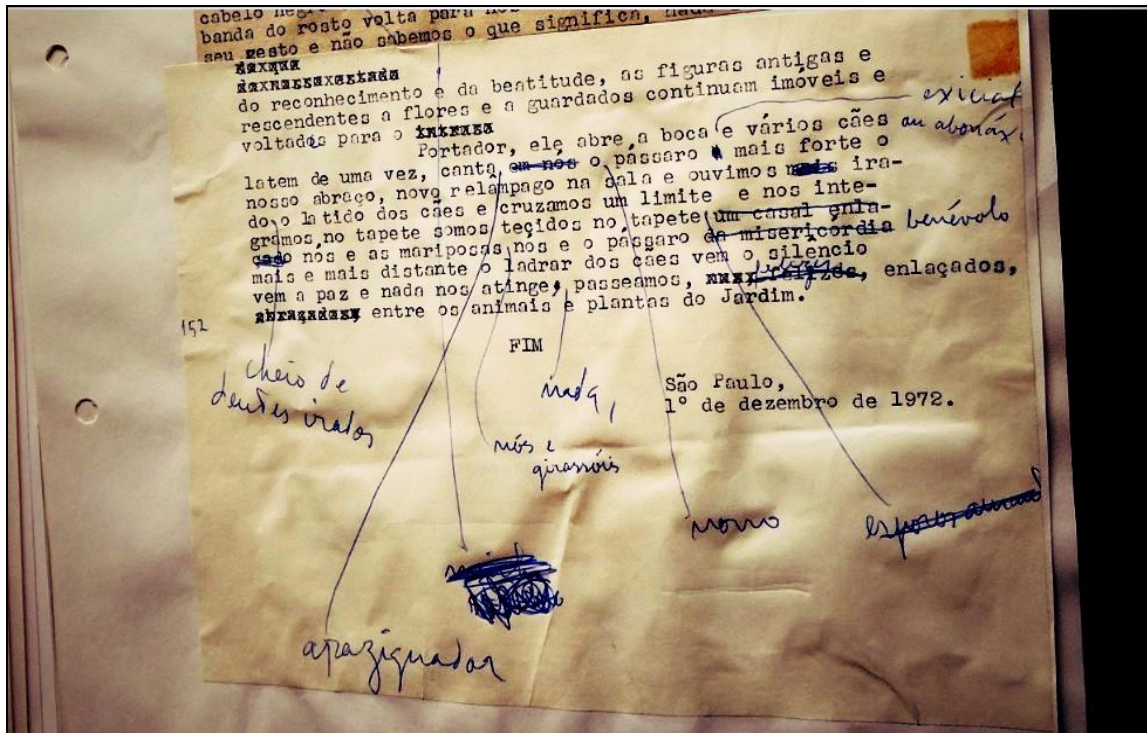 cabelo neg
banda do rosto volta para nos
seu gesto e não sabemos o que significa, nada
do reconhecimento e da beatitude, as figuras antigas e
rescendentes a flores e a guardados continuam imóveis e
voltados para o
exicial
Portador, ele abre a boca e vários cães
ou abonáx.
latem de uma vez, canta em nós o pássaro mais forte o
nosso abraço, novo relâmpago na sala e ouvimos mais ira-
do o latido dos cães e cruzamos um limite e nos inte-
gramos no tapete somos tecidos no tapete um casal enla-
benévolo
çado nós e as mariposas nós e o pássaro da misericórdia
mais e mais distante o ladrar dos cães vem o silêncio
felizes
vem a paz e nada nos atinge, passeamos, felizes, enlaçados,
entre os animais e plantas do Jardim.
152
FIM
cheio de
dentes irados
nada,
São Paulo,
1º de dezembro de 1972.
nós e
girassóis
nosso
apaziguador